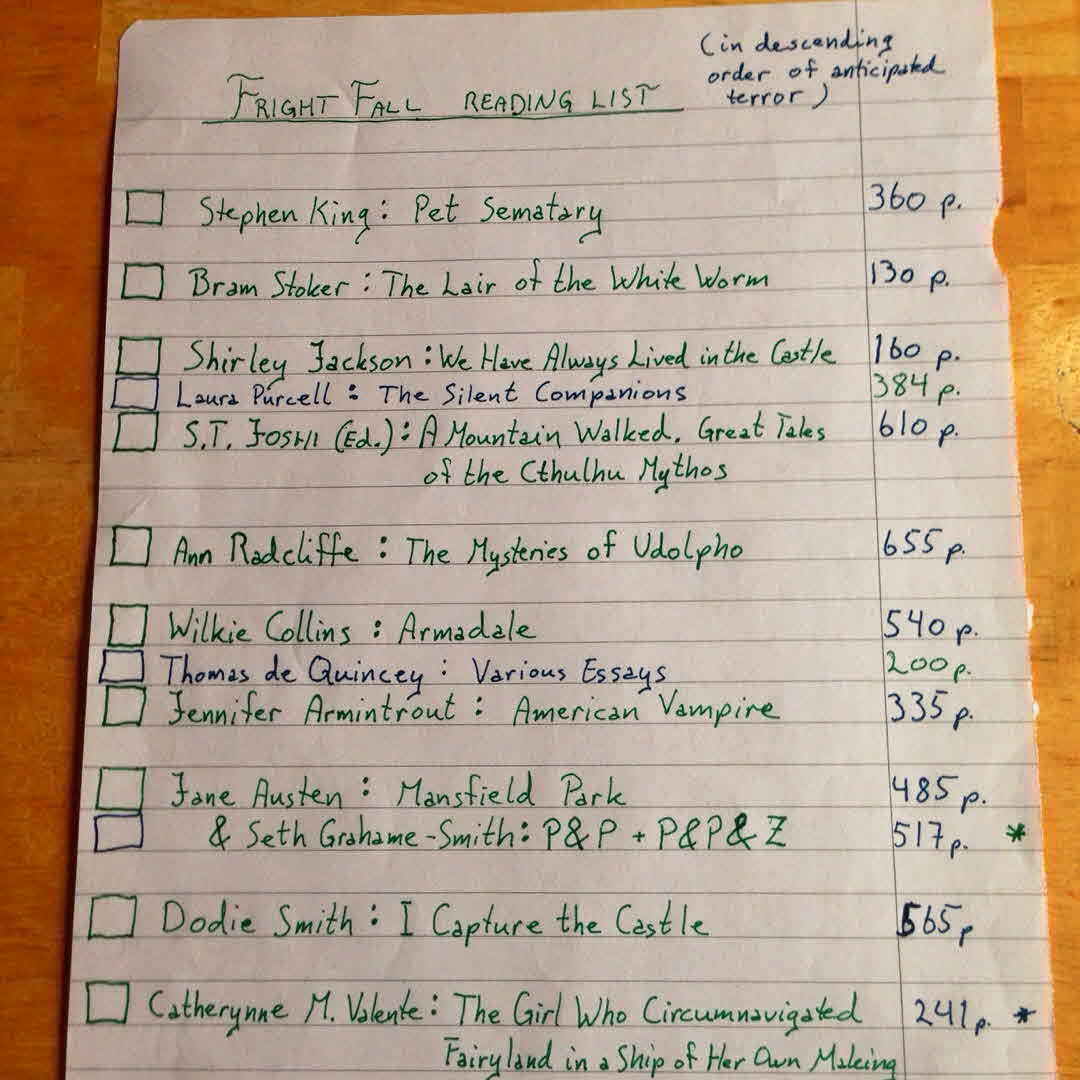 (in descending
order of anticipated
terror)
FRIGHT FALL READING LIST
Stephen King: Pet Sematary 360 p.
Bram Stoker: The Lair of the White Worm 130 p.
Shirley Jackson: We Have Always Lived in the Castle 160 p.
Laura Purcell: The Silent Companions 384 p.
S.T. JOSHI (Ed.): A Mountain Walked, Great Tales 610 p.
of the Cthulhu Mythos
Ann Radcliffe: The Mysteries of Udolpho 655 p.
Wilkie Collins: Armadale 540 p.
Thomas de Quincey: Various Essays 200 p.
Jennifer Armintrout: American Vampire 335 p.
Jane Austen: Mansfield Park 485 p.
& Seth Grahame-Smith: P&P + P&P&Z 517 p. *
Dodie Smith: I Capture the Castle 565 p
Catherynne M. Valente: The Girl Who Circumnavigated 241 p. *
Fairyland in a Ship of Her Own Making